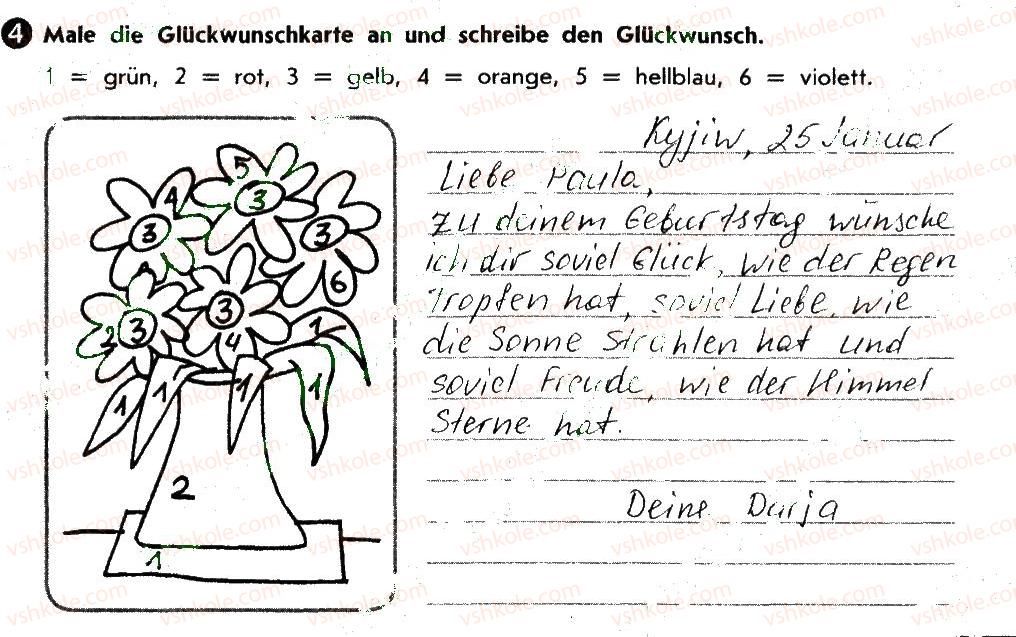 4 Male die Glückwunschkarte an und schreibe den Glückwunsch.
1 = grün, 2 = rot, 3 = gelb, 4 = orange, 5 = hellblau, 6 = violett.
Kyjiw, 25 Januar
Liebe Paula,
zu deinem Geburtstag wünsche
ich dir soviel Glück, wie der Regen
Tropfen hat, soviel Liebe, wie
die Sonne Strahlen hat und
soviel Freude, wie der Himmel
Sterne hat.
Deine Darja
5
4 3
3 3
6
3
2 3
4 1
1 1 1 1
2
1
vshkole.com